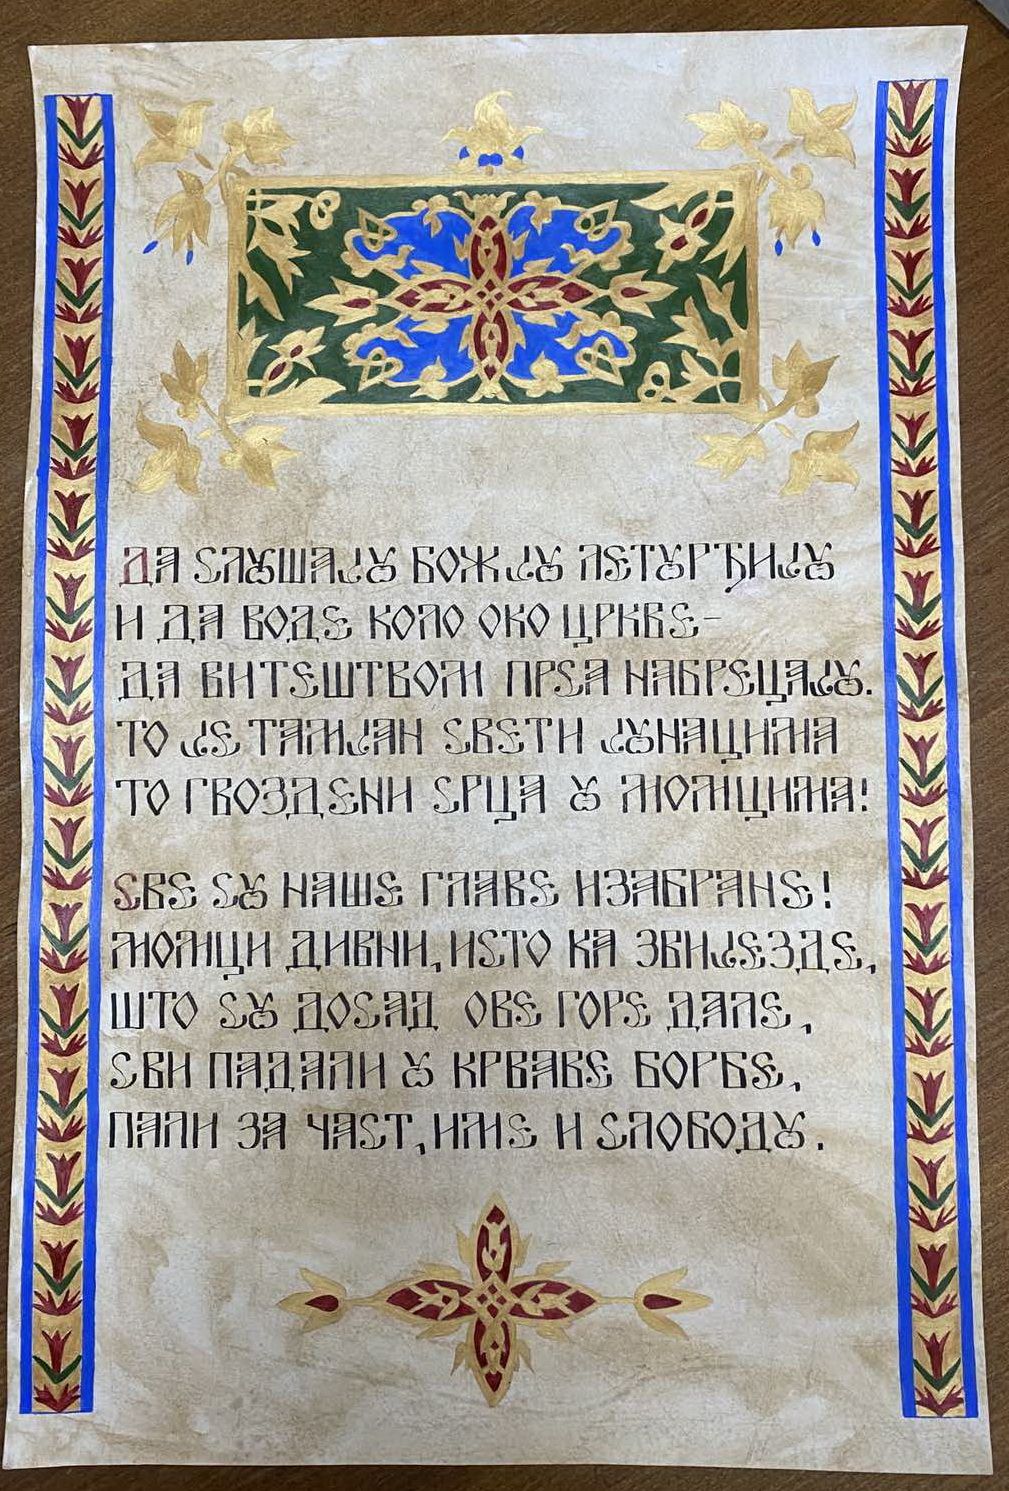 ДА СЛУШАЈУ БОЖЈУ ЛЕТУРЂИЈУ
И ДА ВОДЕ КОЛО ОКО ЦРКВЕ-
ДА ВИТЕШТВОМ ПРСА НАБРЕЦАЈУ.
ТО ЈЕ ТАМЈАН СВЕТИ ЈУНАЦИМА
ТО ГВОЗДЕНИ СРЦА У МОМЦИМА!
СВЕ СУ НАШЕ ГЛАВЕ ИЗАБРАНЕ!
МОМЦИ ДИВНИ, ИСТО КА ЗВИЈЕЗДЕ,
ШТО СУ ДОСАД ОВЕ ГОРЕ ДАЛЕ,
СВИ ПАДАЛИ У КРВАВЕ БОРБЕ,
ПАЛИ ЗА ЧАСТ, ИМЕ И СЛОБОДУ.